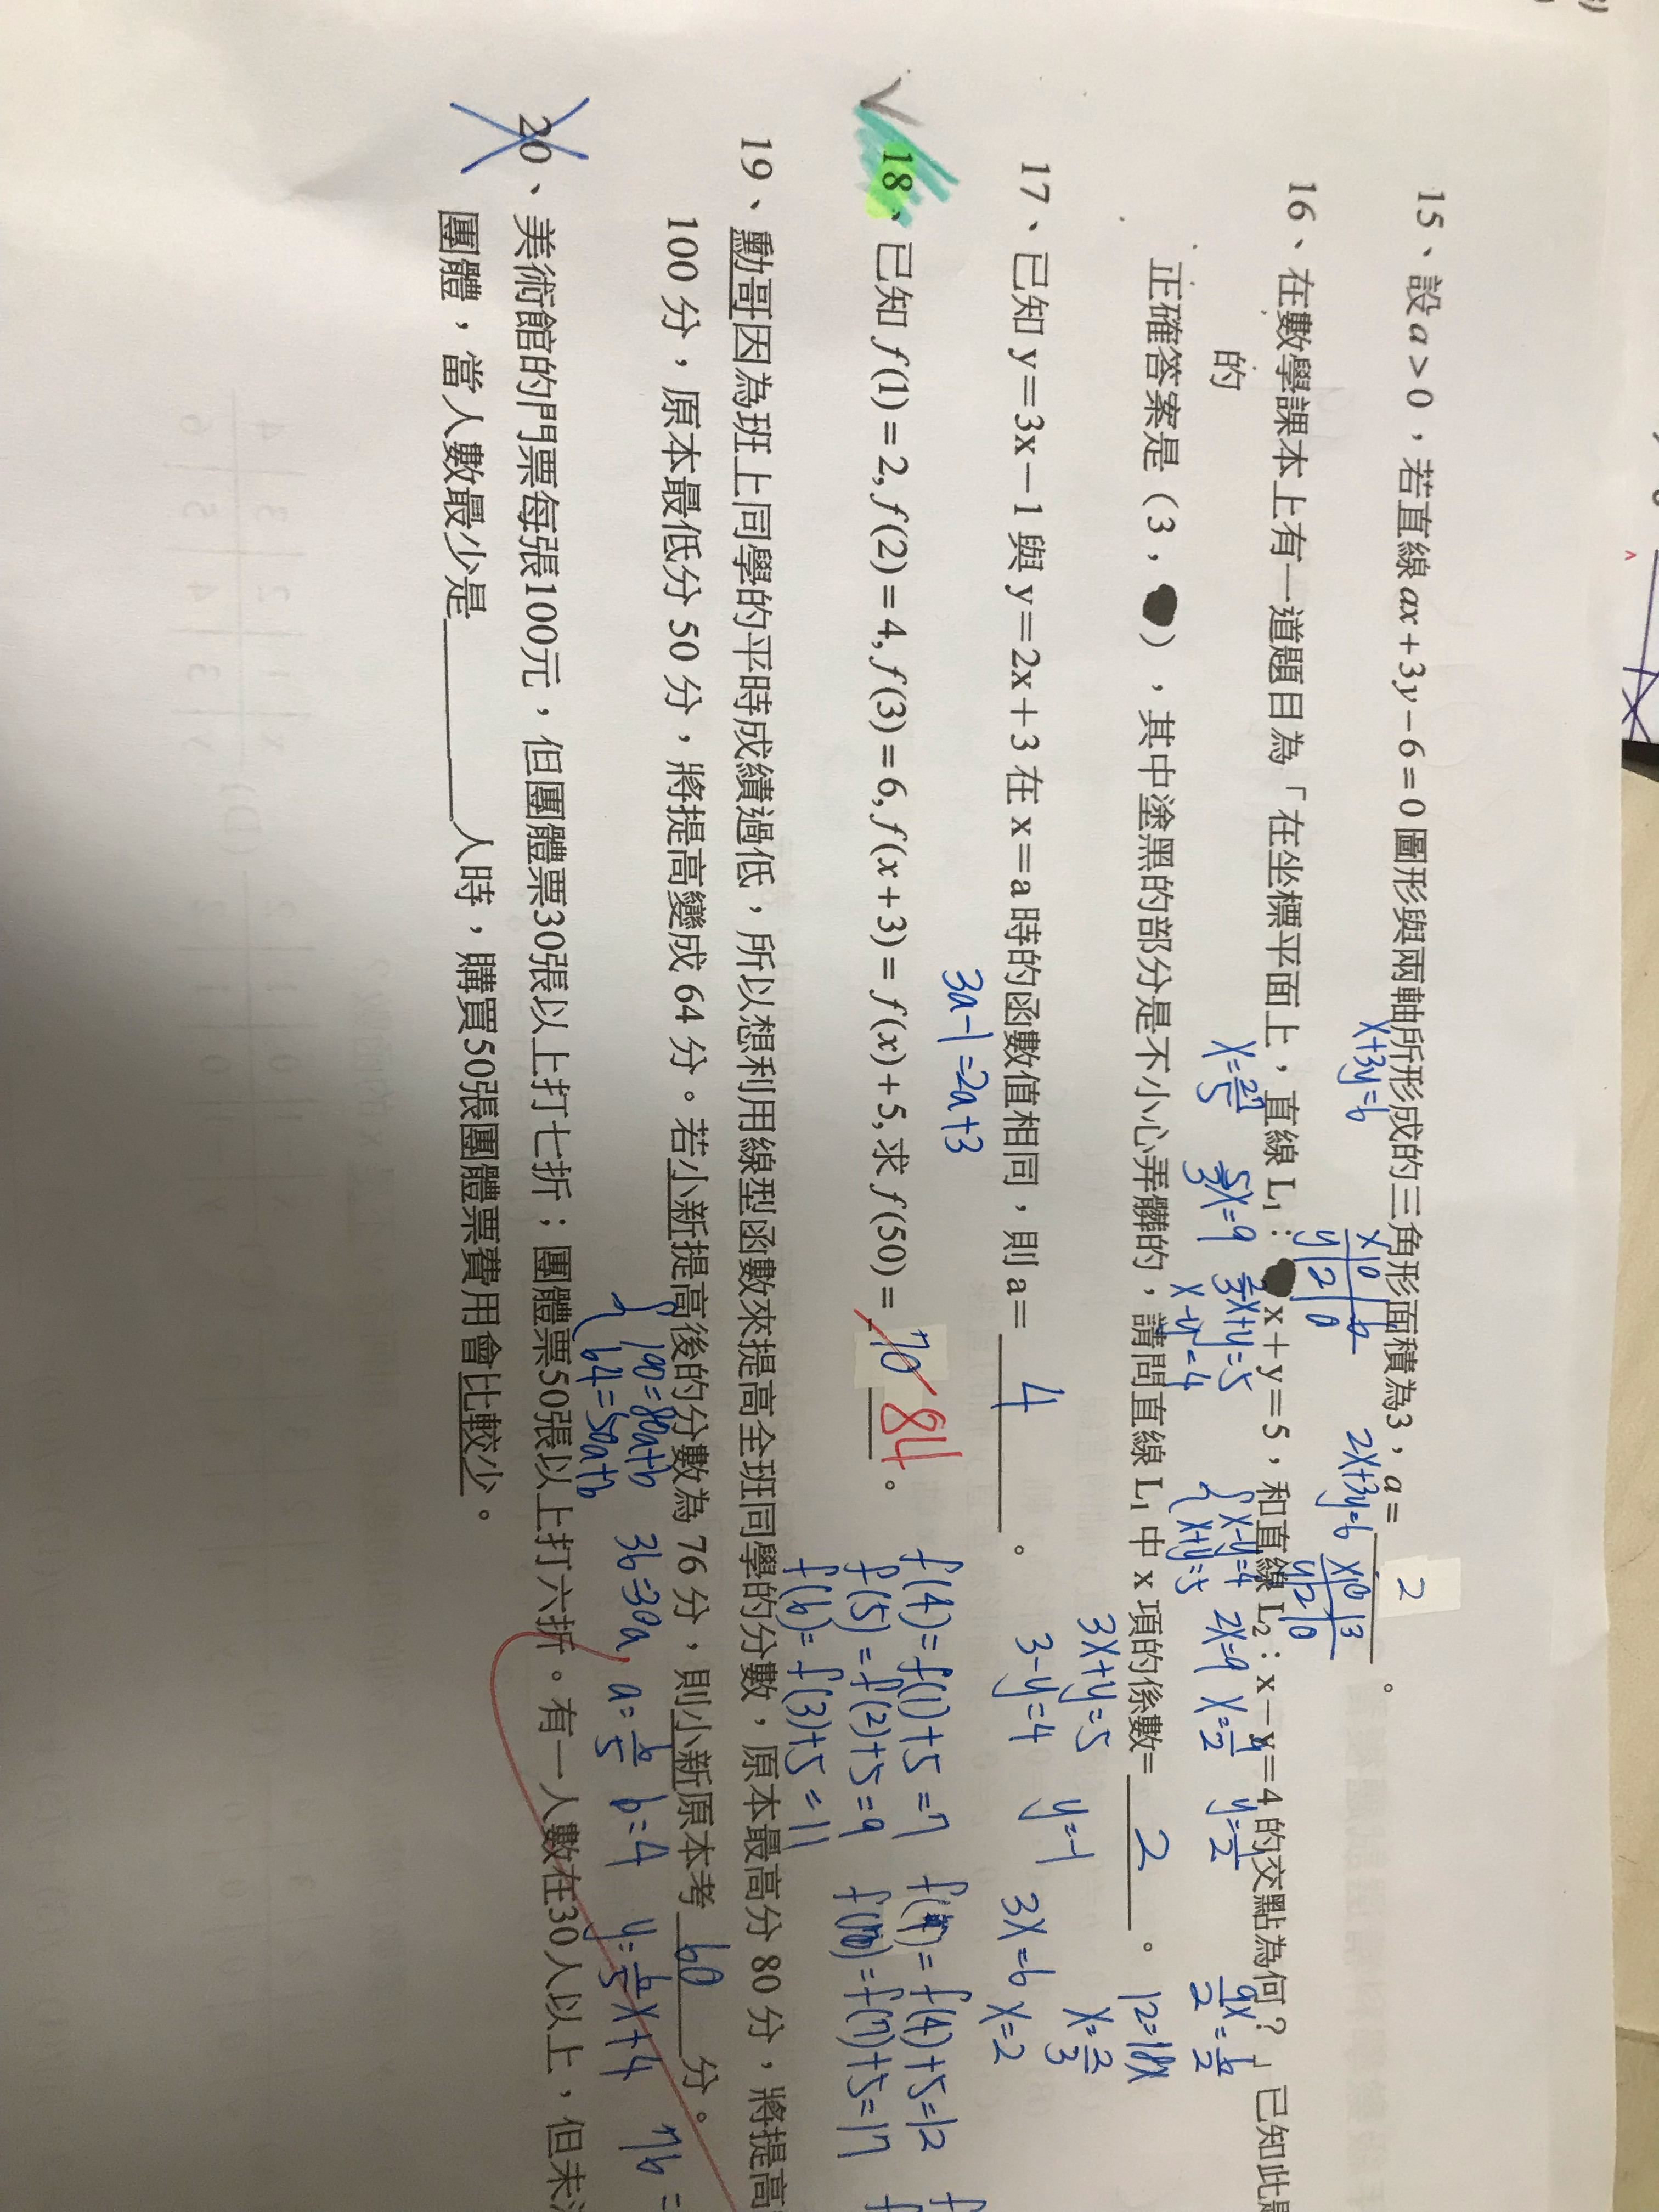 15、設 a > 0，若直線 ax + 3y − 6 = 0 圖形與兩軸所形成的三角形面積為3，a = 2 。
x+3y=6
2x+3y=6
16、在數學課本上有一道題目為「在坐標平面上，直線 L₁：●x＋y＝5，和直線 L₂：x－y＝4 的交點為何？」已知此題
的
正確答案是（3，●），其中塗黑的部分是不小心弄髒的，請問直線 L₁ 中 x 項的係數= 2 。
x=27/5
5/3x=9
2/3x+y=5
x-y=4
{x-y=4
x+y=5
2x=9
x=9/2
y=1/2
9x/2=6/2
12=18x
x=2/3
3x+y=5
3-y=4
y=-1
3x=6
x=2
17、已知 y＝3x－1 與 y＝2x＋3 在 x＝a 時的函數值相同，則 a＝ 4 。
3a-1=2a+3
18、已知 f(1) = 2, f(2) = 4, f(3) = 6, f(x+3) = f(x)+5, 求 f(50) = 70 84 。
f(4)=f(1)+5=7
f(5)=f(2)+5=9
f(6)=f(3)+5=11
f(7)=f(4)+5=12
f(10)=f(7)+5=17
19、勳哥因為班上同學的平時成績過低，所以想利用線型函數來提高全班同學的分數，原本最高分 80 分，將提高
100 分，原本最低分 50 分，將提高變成 64 分。若小新提高後的分數為 76 分，則小新原本考 60 分。
{100=80a+b
64=50a+b
36=30a
a=6/5
b=4
y=6/5x+4
76=
20、美術館的門票每張100元，但團體票30張以上打七折；團體票50張以上打六折。有一人數在30人以上，但未
團體，當人數最少是________人時，購買50張團體票費用會比較少。